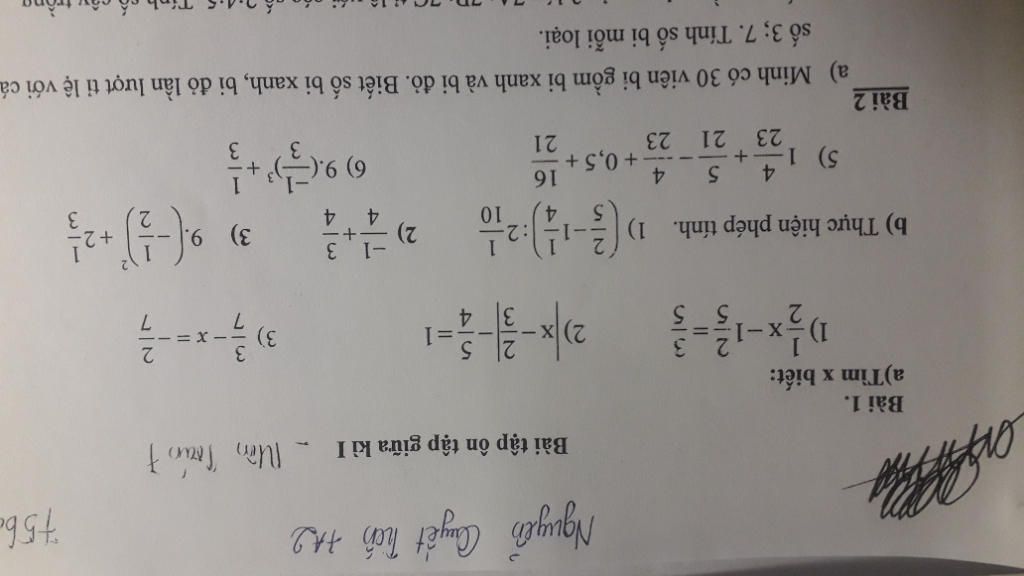 Nguyễn Quyết Tiến 7A2
Bài tập ôn tập giữa kì I - Môn Toán 7
Bài 1.
a)Tìm x biết:
1) 1/2 x − 1 2/5 = 3/5 2) |x − 2/3| − 5/4 = 1 3) 3/7 − x = − 2/7
b) Thực hiện phép tính. 1) (2/5 − 1 1/4) : 2 1/10 2) −1/4 + 3/4 3) 9.(− 1/2)² + 2 1/3
5) 1 4/23 + 5/21 − 4/23 + 0,5 + 16/21 6) 9.(−1/3)³ + 1/3
Bài 2
a) Minh có 30 viên bi gồm bi xanh và bi đỏ. Biết số bi xanh, bi đỏ lần lượt tỉ lệ với cá
số 3; 7. Tính số bi mỗi loại.